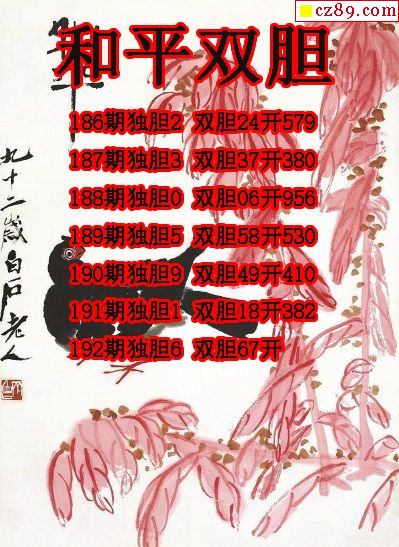 cz89.com
和平双胆
186期独胆2 双胆24开579
187期独胆3 双胆37开380
188期独胆0 双胆06开956
189期独胆5 双胆58开530
190期独胆9 双胆49开410
191期独胆1 双胆18开382
192期独胆6 双胆67开
九十二歲白石老人